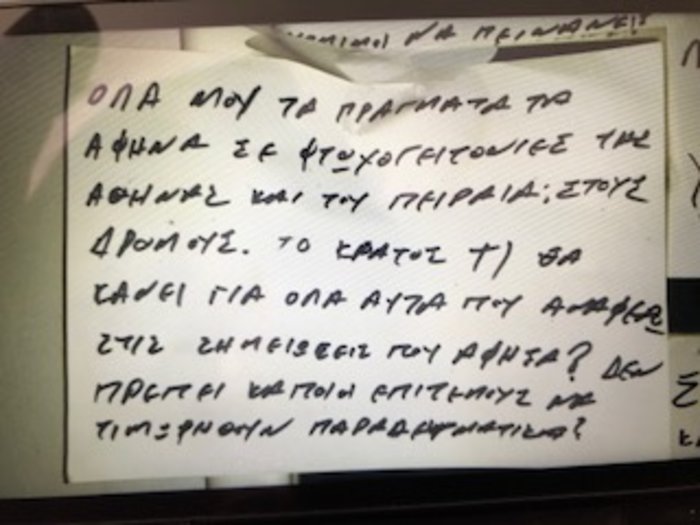 ΝΟΜΙΜΟΙ ΝΑ ΠΕΙΝΑΝΕ!!
ΟΛΑ ΜΟΥ ΤΑ ΠΡΑΓΜΑΤΑ ΤΑ
ΑΦΗΝΑ ΣΕ ΦΤΩΧΟΓΕΙΤΟΝΙΕΣ ΤΗΣ
ΑΘΗΝΑΣ ΚΑΙ ΤΟΥ ΠΕΙΡΑΙΑ; ΣΤΟΥΣ
ΔΡΟΜΟΥΣ. ΤΟ ΚΡΑΤΟΣ ΤΙ ΘΑ
ΚΑΝΕΙ ΓΙΑ ΟΛΑ ΑΥΤΑ ΠΟΥ ΑΝΑΦΕΡΩ
ΣΤΙΣ ΣΗΜΕΙΩΣΕΙΣ ΠΟΥ ΑΦΗΣΑ? ΔΕΝ
ΠΡΕΠΕΙ ΚΑΠΟΙΟΙ ΕΠΙΤΕΛΟΥΣ ΝΑ
ΤΙΜΩΡΗΘΟΥΝ ΠΑΡΑΔΕΙΓΜΑΤΙΚΑ?